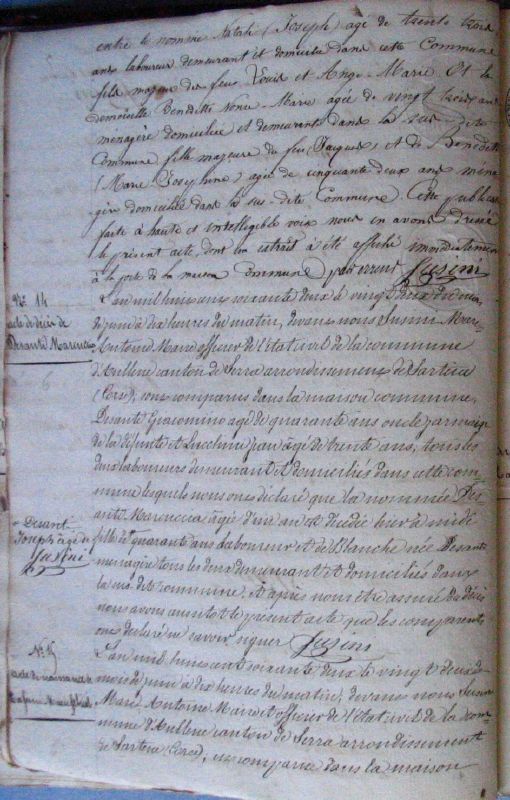 entre le nommé Natali (Joseph) agé de trente trois
ans laboureur demeurant et domicilié dans cette Commune
fils majeur des feus Louis et Ange Marie Et la
demoiselle Benditti Marie agée de vingt trois ans
menagère domiciliée et demeurant dans la sus dite
Commune fille majeure du feu (Jacques) et de Benedetti
(Marie Josephine) agée de cinquante deux ans mena
gère domiciliée dans la sus-dite Commune. Cette publication
faite à haute et intelligible voix nous en avons dressé
le présent acte, dont un extrait à été affiché immédiatement
à la porte de la maison Commune par erreur Susini
No 14
acte de décès de
Desanti Marinecca
L'an mil huit cent soixante deux le vingt deux du mois
de juin à dix heures du matin, devant nous Susini Marc
Antoine Maire officier de l'état civil de la commune
d'Aullene canton de Serra arrondissement de Sartene
(Corse), sont comparus dans la maison commune,
Desanti Giacomino agé de quarante ans oncle
de la défunte et Lucchini Jean âgé de trente ans, tous les
deux laboureurs demeurant et domiciliés dans cette com
mune lesquels nous ont déclaré que la nommée Des
anti Marinecca agée d'un an est décédée hier à midi
de Desanti
Joseph agé de
Susini
fille quarante ans laboureur et de Blanche née Desanti
menagère tous les deux demeurant et domiciliés dans
la sus dite commune, et après nous être assuré du décès
nous avons aussitot le present acte que les comparants
ont déclaré ne savoir signer Susini
No 15
acte de naissance de
L'an mil huit cent soixante deux le vingt deux du
mois de juin à dix heures du matin, devant nous Susini
Marc Antoine Maire et officier de l'état civil de la com
mune d'Aullene canton de Serra arrondissement
de Sartene (Corse), est comparu dans la maison